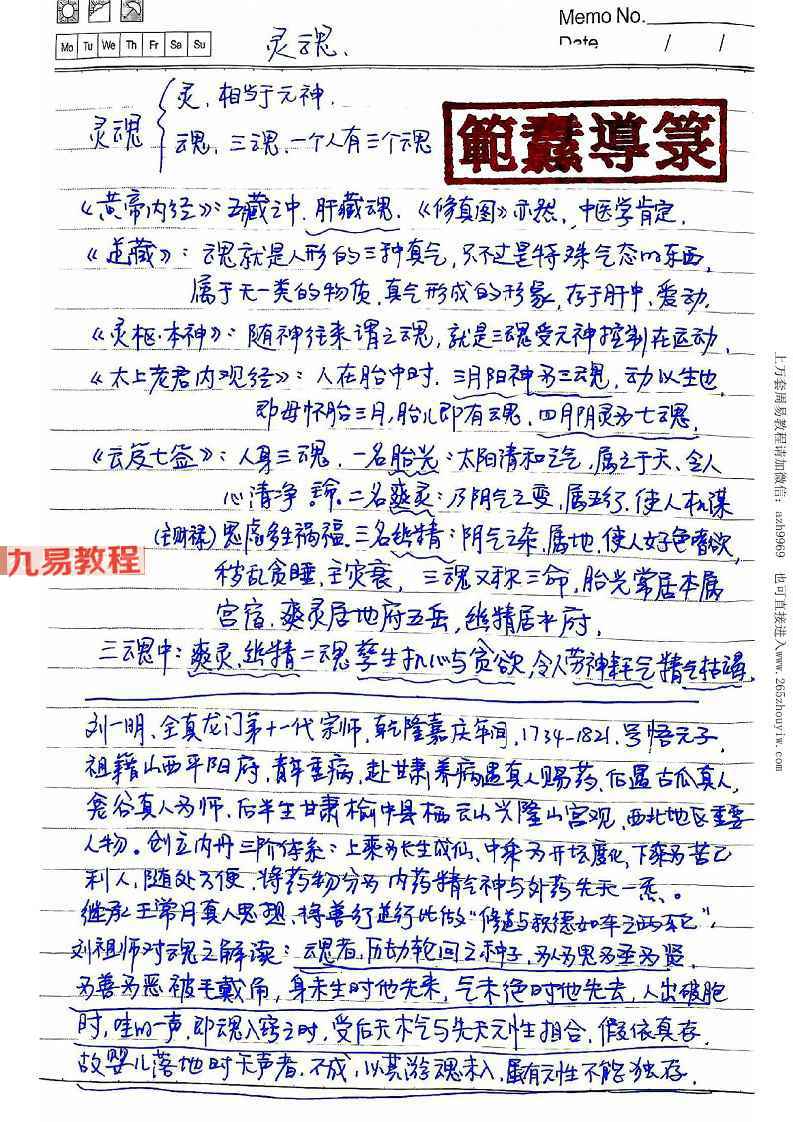 Memo No.
Date / /
Mo Tu We Th Fr Sa Su
灵魂、
灵魂
灵、相当于元神.
魂、三魂、一个人有三个魂
範蠡導箓
《黄帝内经》：五藏之中，肝藏魂. 《修真图》亦然，中医学肯定.
《道藏》：魂就是人形的三种真气，只不过是特殊气态的东西，
属于无一类的物质，真气形成的形象，存于肝中，爱动.
《灵枢·本神》：随神往来谓之魂，就是三魂受元神控制在运动.
《太上老君内观经》：人在胎中时，三月阳神为三魂，动以生也，
即母怀胎三月，胎儿即有魂，四月阴灵为七魄，
《云笈七签》：人身三魂，一名胎光：太阳清和之气，属之于天、令人
心清净 二名爽灵：乃阴气之变，属五行，使人机谋
(主财禄) 思虑多生祸福，三名幽精：阴气之杂，属地，使人好色嗜欲，
秽乱贪睡，主灾衰， 三魂又称三命，胎光常居本属
宫宿，爽灵居地府五岳，幽精居水府，
三魂中：爽灵、幽精二魂孽生机心与贪欲，令人劳神耗气精气枯竭，
刘一明、全真龙门第十一代宗师，乾隆嘉庆年间，1734-1821，号悟元子，
祖籍山西平阳府，青年重病，赴甘肃养病遇真人赐药，后遇古瓜真人，
龛谷真人为师，后半生甘肃榆中县栖云山兴隆山宫观，西北地区重要
人物。创立内丹三阶体系：上乘为长生成仙、中乘为开坛度化，下乘为苦己
利人，随处方便，将药物分为内药精气神与外药先天一炁、。
继承王常月真人思想、将善行道行比做“修道与积德如车之两轮”，
刘祖师对魂之解读：魂者，历劫轮回之种子，为人为鬼为圣为贤，
为善为恶被毛戴角，身未生时他先来，气未绝时他先去，人出破胞
时，哇的一声，即魂入窍之时，受后天木气与先天元性相合，假依真存，
故婴儿落地时无声者，不成，以其游魂未入，虽有元性不能独存，
九易教程
上万套周易教程请加微信：azh9969 也可直接进入www.265zhouyiw.com